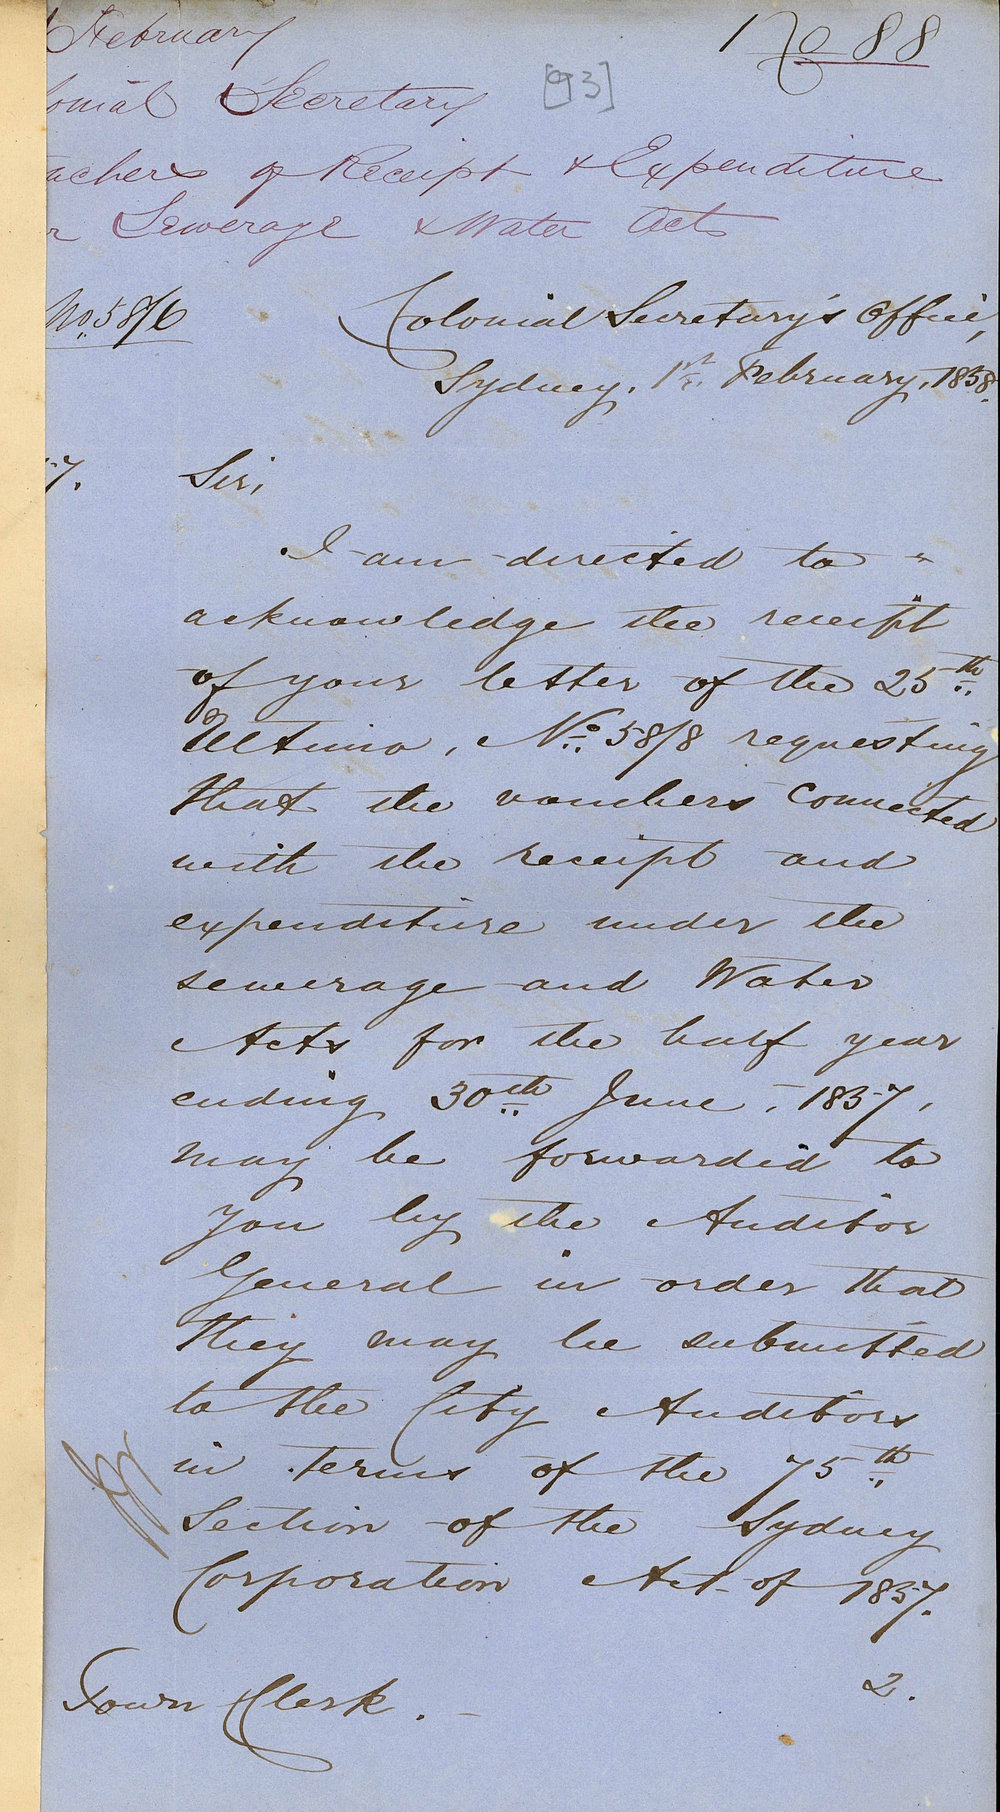 February
No 88
[93]
onial Secretary
uchers of Receipt & Expenditure
r Sewerage & Water Acts
No. 58/6
Colonial Secretary's Office,
Sydney. 1st February, 1858.
57.
Sir,
I am directed to "
acknowledge the receipt
of your letter of the 25th
Ultimo, No. 58/8 requesting
that the vouchers connected
with the receipt and
expenditure under the
sewerage and Water
Acts for the half year
ending 30th June, 1857,
may be forwarded to
you by the Auditor
General in order that
they may be submitted
to the City Auditors
in terms of the 75th
Section of the Sydney
Corporation Act of 1857.
2.
Town Clerk.